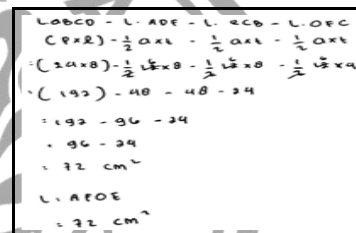 LABCD - L. ADE - L. ECB - L. OFC
(P×l) - 1/2 a×t - 1/2 a×t - 1/2 a×t
= (24×8) - 1/2 12×8 - 1/2 12×8 - 1/2 12×4
= (192) - 48 - 48 - 24
= 192 - 96 - 24
= 96 - 24
= 72 cm²
L. AFOE
= 72 cm²